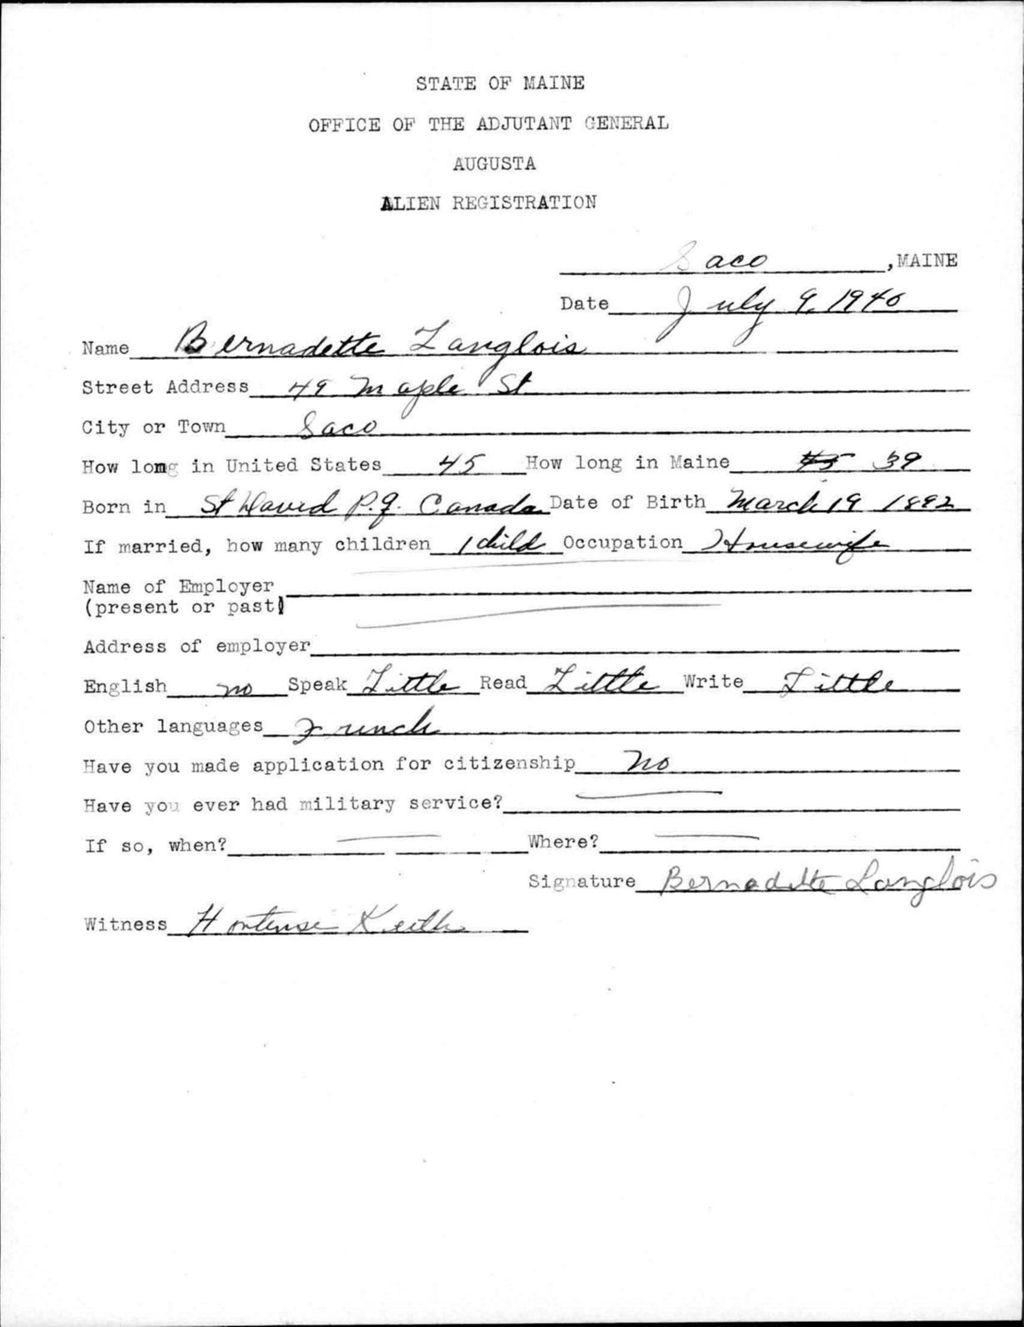 STATE OF MAINE
OFFICE OF THE ADJUTANT GENERAL
AUGUSTA
ALIEN REGISTRATION
Saco, MAINE
Date July 9, 1940
Name Bernadette Langlois
Street Address 49 Maple St
City or Town Saco
How long in United States 45 How long in Maine 45 39
Born in St David P.Q. Canada Date of Birth March 19 1892
If married, how many children 1 child Occupation Housewife
Name of Employer
(present or past)
Address of employer
English no Speak Little Read Little Write Little
Other languages French
Have you made application for citizenship No
Have you ever had military service?
If so, when? Where?
Signature Bernadette Langlois
Witness Hortense Keith